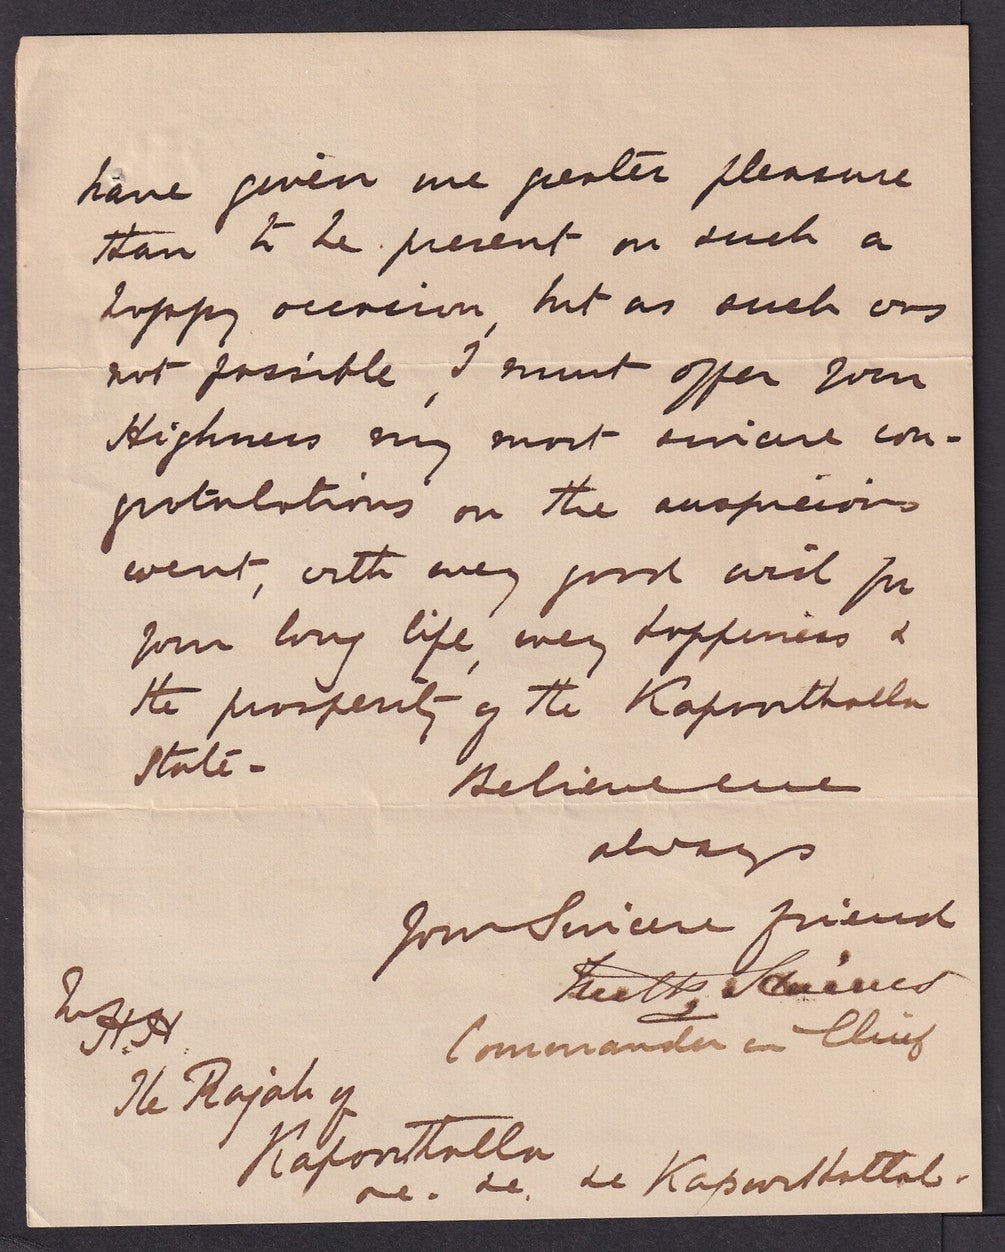 have given me greater pleasure
than to be present on such a
happy occasion, but as such was
not possible, I must offer your
Highness my most sincere con-
gratulations on the auspicious
event, with every good wish for
your long life, every happiness &
the prosperity of the Kapoorthalla
State -
Believe me
always
Your Sincere friend
Commander in Chief
To
H.H.
The Rajah of
Kapoorthalla
&c. &c. &c Kapoorthallah.